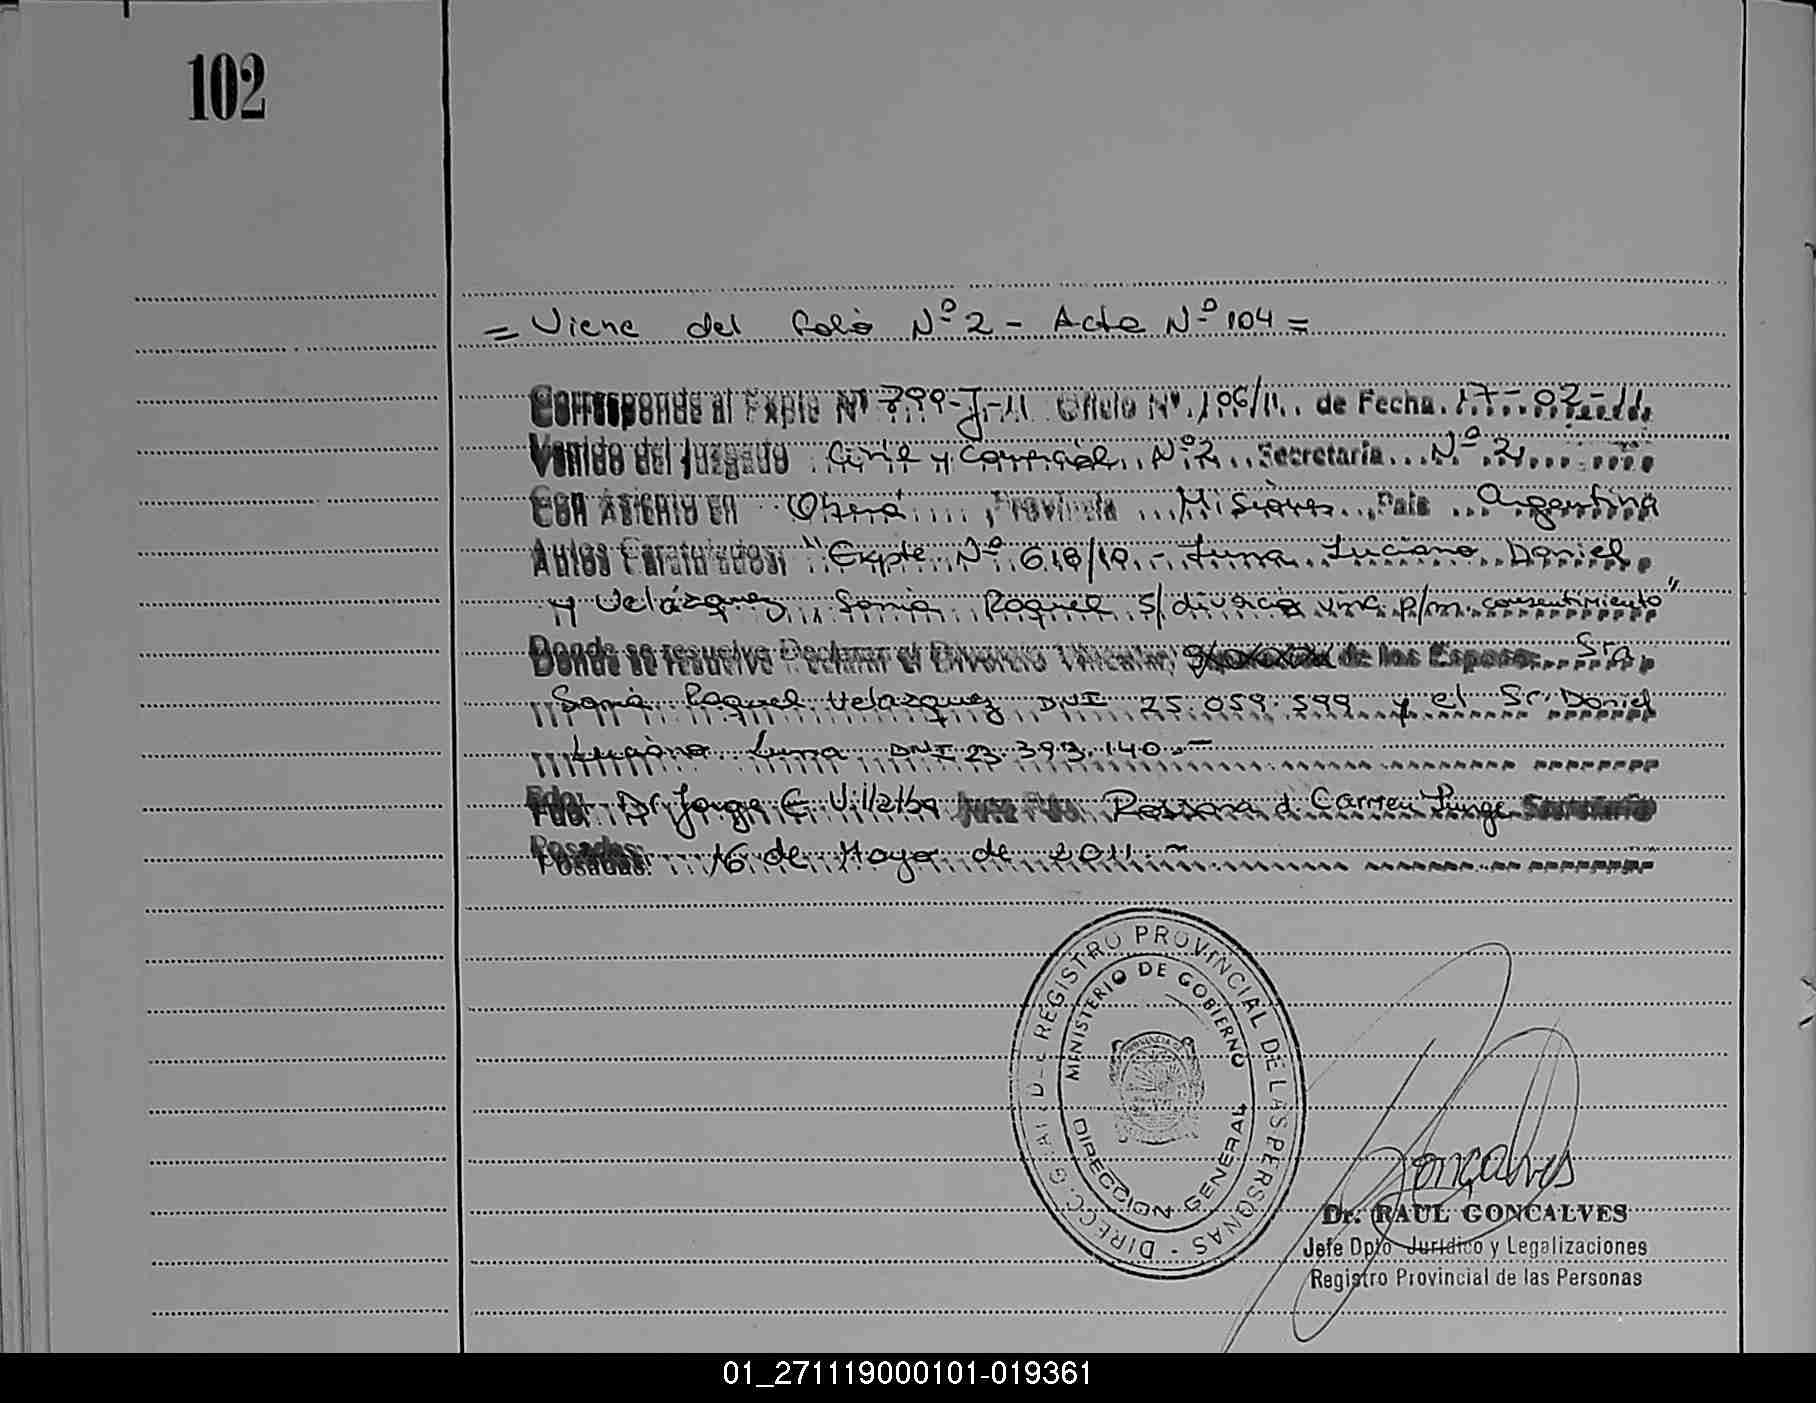 102
= Viene del folio Nº 2 - Acta Nº 104 =
Corresponde al Expte Nº 799-J-11 Oficio Nº 106/11 de Fecha 17-02-11
Venido del Juzgado Civil y Comercial Nº 2 Secretaria Nº 2
Con Asiento en Oberá, Provincia Misiones, Pais Argentina
Autos Caratulados: "Expte Nº 618/10 - Luna Luciano Daniel
y Velázquez Sonia Raquel s/ divorcio vinc. p/m. consentimiento"
Donde se resuelve Declarar el Divorcio Vincular de los Esposos Sra.
Sonia Raquel Velazquez DNI 25.059.599 y el Sr. Daniel
Luciano Luna DNI 23.393.140.-
Fdo: Dr Jorge E. Villalba Juez Fdo. Rossana d. Carmen Secretaria
Posadas: 16 de Mayo de 2011.-
DIRECC. GRAL DE REGISTRO PROVINCIAL DE LAS PERSONAS -
MINISTERIO DE GOBIERNO
DIRECCION GENERAL
Goncalves
Dr. RAUL GONCALVES
Jefe Dpto Jurídico y Legalizaciones
Registro Provincial de las Personas
01_271119000101-019361